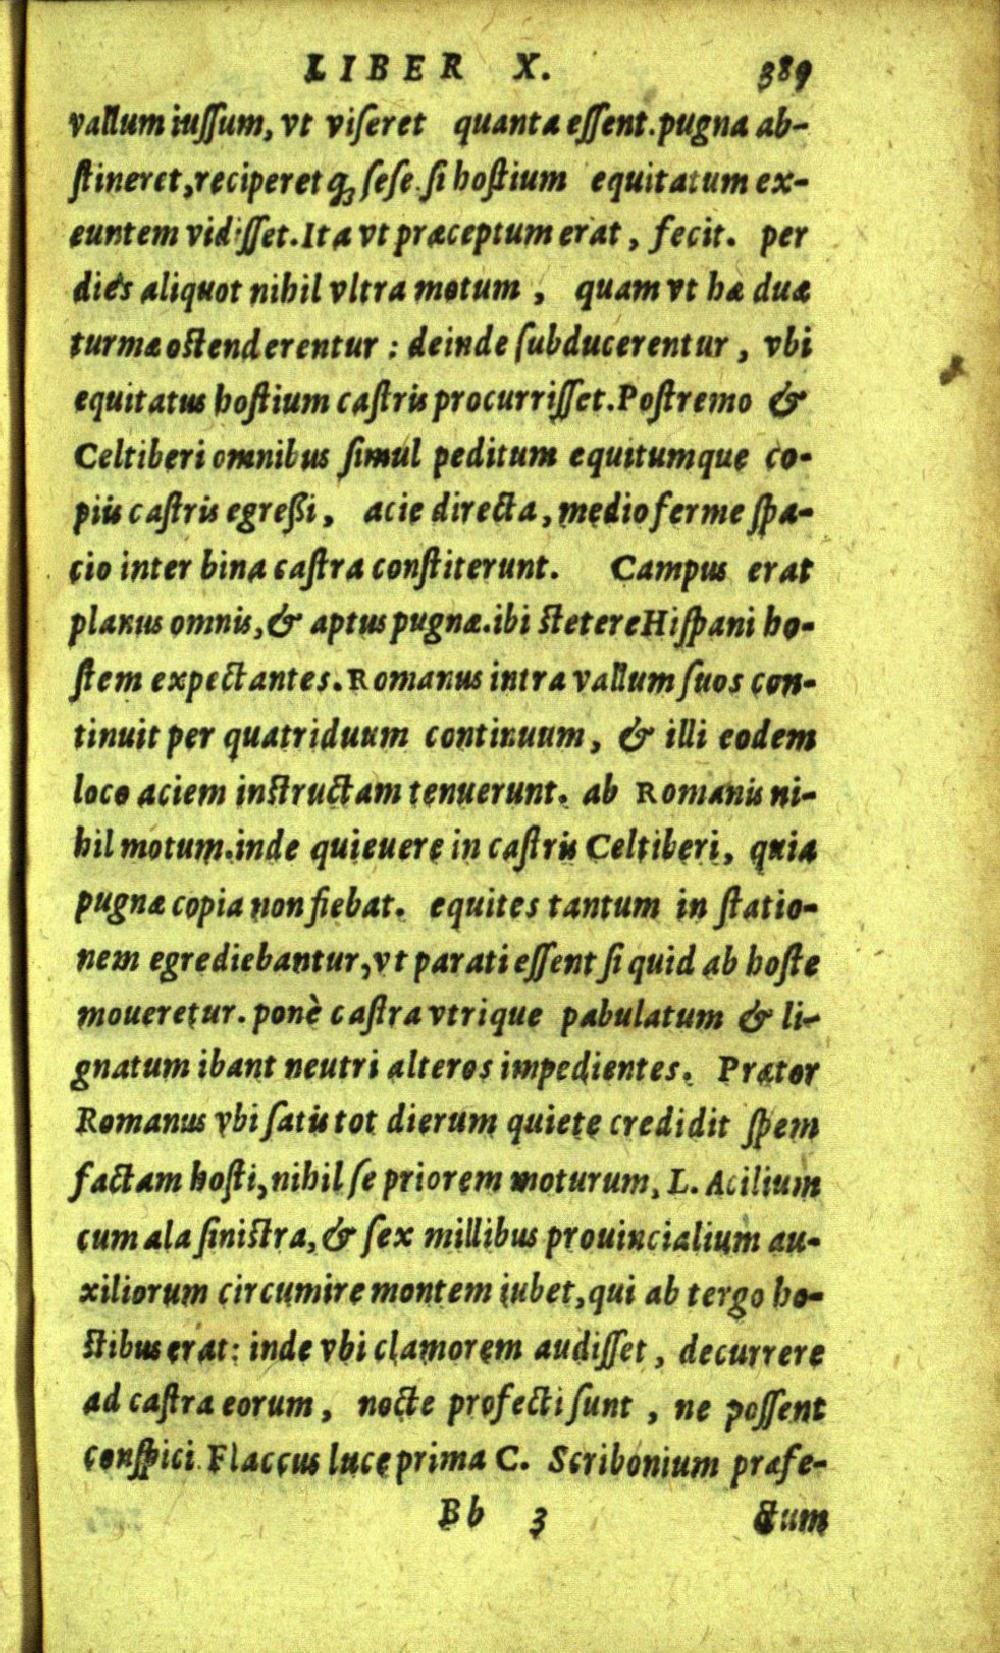 LIBER X. 389
vallum iussum, vt viseret quanta essent. pugna ab-
stineret, reciperetq; sese. si hostium equitatum ex-
euntem vidisset. Ita vt præceptum erat, fecit. per
dies aliquot nihil vltra motum, quam vt hæ duæ
turmæ ostenderentur : deinde subducerentur, vbi
equitatus hostium castris procurrisset. Postremo &
Celtiberi omnibus simul peditum equitumque co-
piis castris egreßi, acie directa, medio ferme spa-
cio inter bina castra constiterunt. Campus erat
planus omnis, & aptus pugnæ. ibi stetere Hispani ho-
stem expectantes. Romanus intra vallum suos con-
tinuit per quatriduum continuum, & illi eodem
loco aciem instructam tenuerunt. ab Romanis ni-
hil motum. inde quieuere in castris Celtiberi, quia
pugnæ copia non fiebat. equites tantum in statio-
nem egrediebantur, vt parati essent si quid ab hoste
moueretur. ponè castra vtrique pabulatum & li-
gnatum ibant neutri alteros impedientes. Prætor
Romanus vbi satis tot dierum quiete credidit spem
factam hosti, nihil se priorem moturum, L. Acilium
cum ala sinistra, & sex millibus prouincialium au-
xiliorum circumire montem iubet, qui ab tergo ho-
stibus erat: inde vbi clamorem audisset, decurrere
ad castra eorum, nocte profecti sunt, ne possent
conspici. Flaccus luce prima C. Scribonium præfe-
Bb 3 ctum